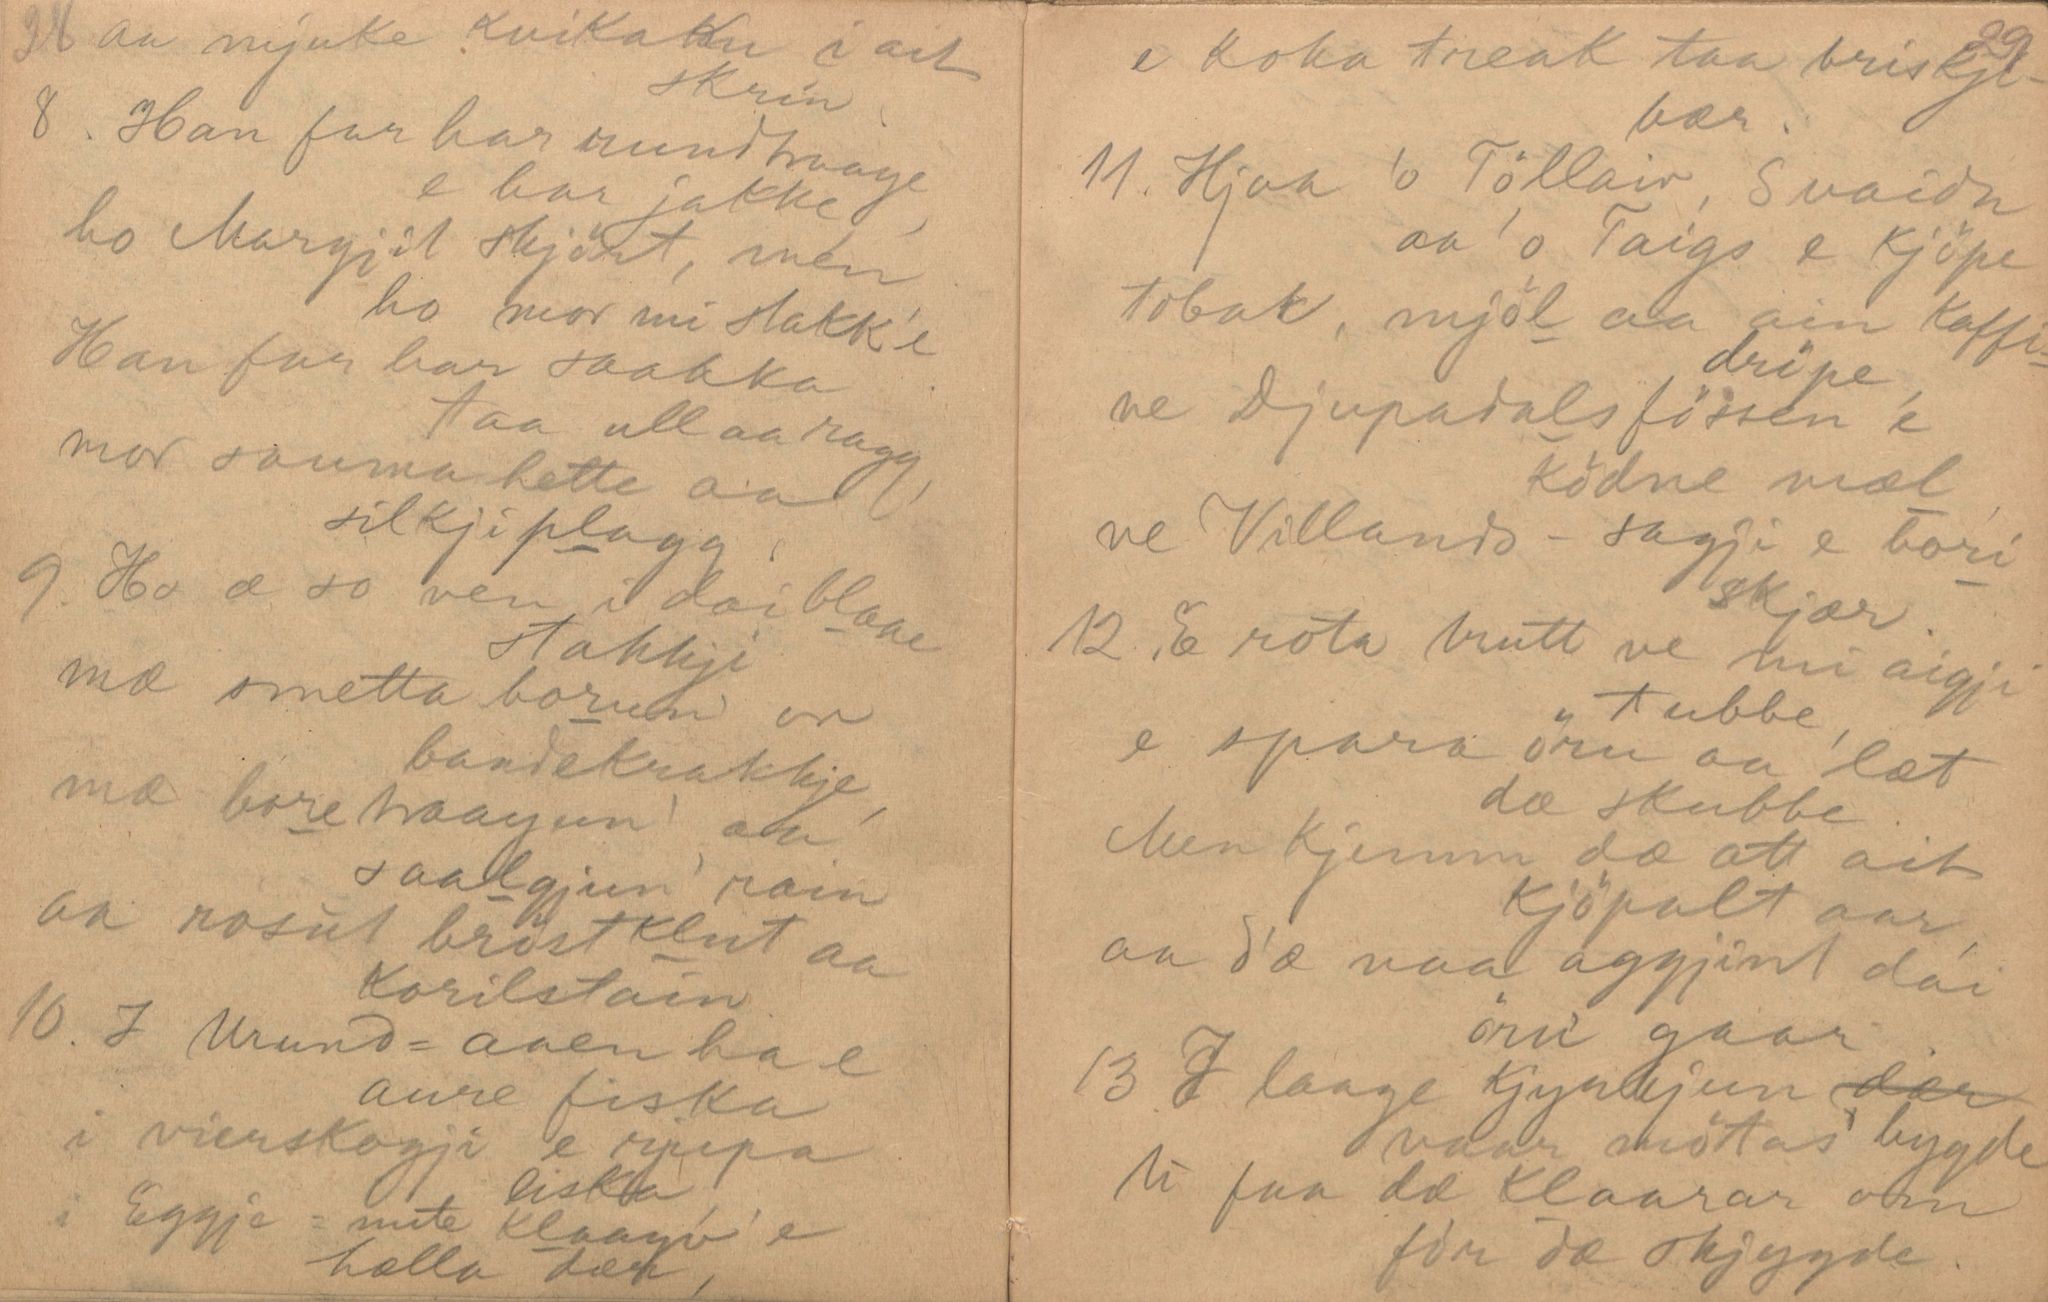 28
aa mjuke kvikaku i ait
skrin.
8. Han far bar rundtraaye
e bar jakke,
ho Margjit skjört, men
ho mor mi stakk'e
Han far bar saakka
taa ull aa ragg,
mor sauma hette aa
silkjiplagg.
9. Ho æ so ven i dai blaae
stakkji
mæ smetta borun' or
bandekrakkje,
mæ bore traayun' aa
saalgjun' rain
aa rosut bröstklut aa
korilstain
10. I Urund = aaen ha e
aure fiska
i vierskogji e rjupa
eiska
i Eggje = nute klaayv'e
hælla dær,
29
e koka treak taa briskje-
bær.
11. Hjaa 'o Töllaiv, Svaidn
aa 'o Taigs e kjöpe
tobak, mjöl aa ain kaffi-
dröpe,
ve Djupadalsfössen 'e
ködne mæl,
ve Villands - sagji e bori
skjær.
12. E rota brutt ve mi aigji
tubbe,
e spara öru aa 'læt
dæ skubbe
Men kjemm dæ att ait
kjöpalt aar,
aa d'æ vaa aggjint dai
öru gaar
13 I laage kjynnjun dær
vaar mötas' bygde
ti faa dæ klaarar om
för dæ skjygde.